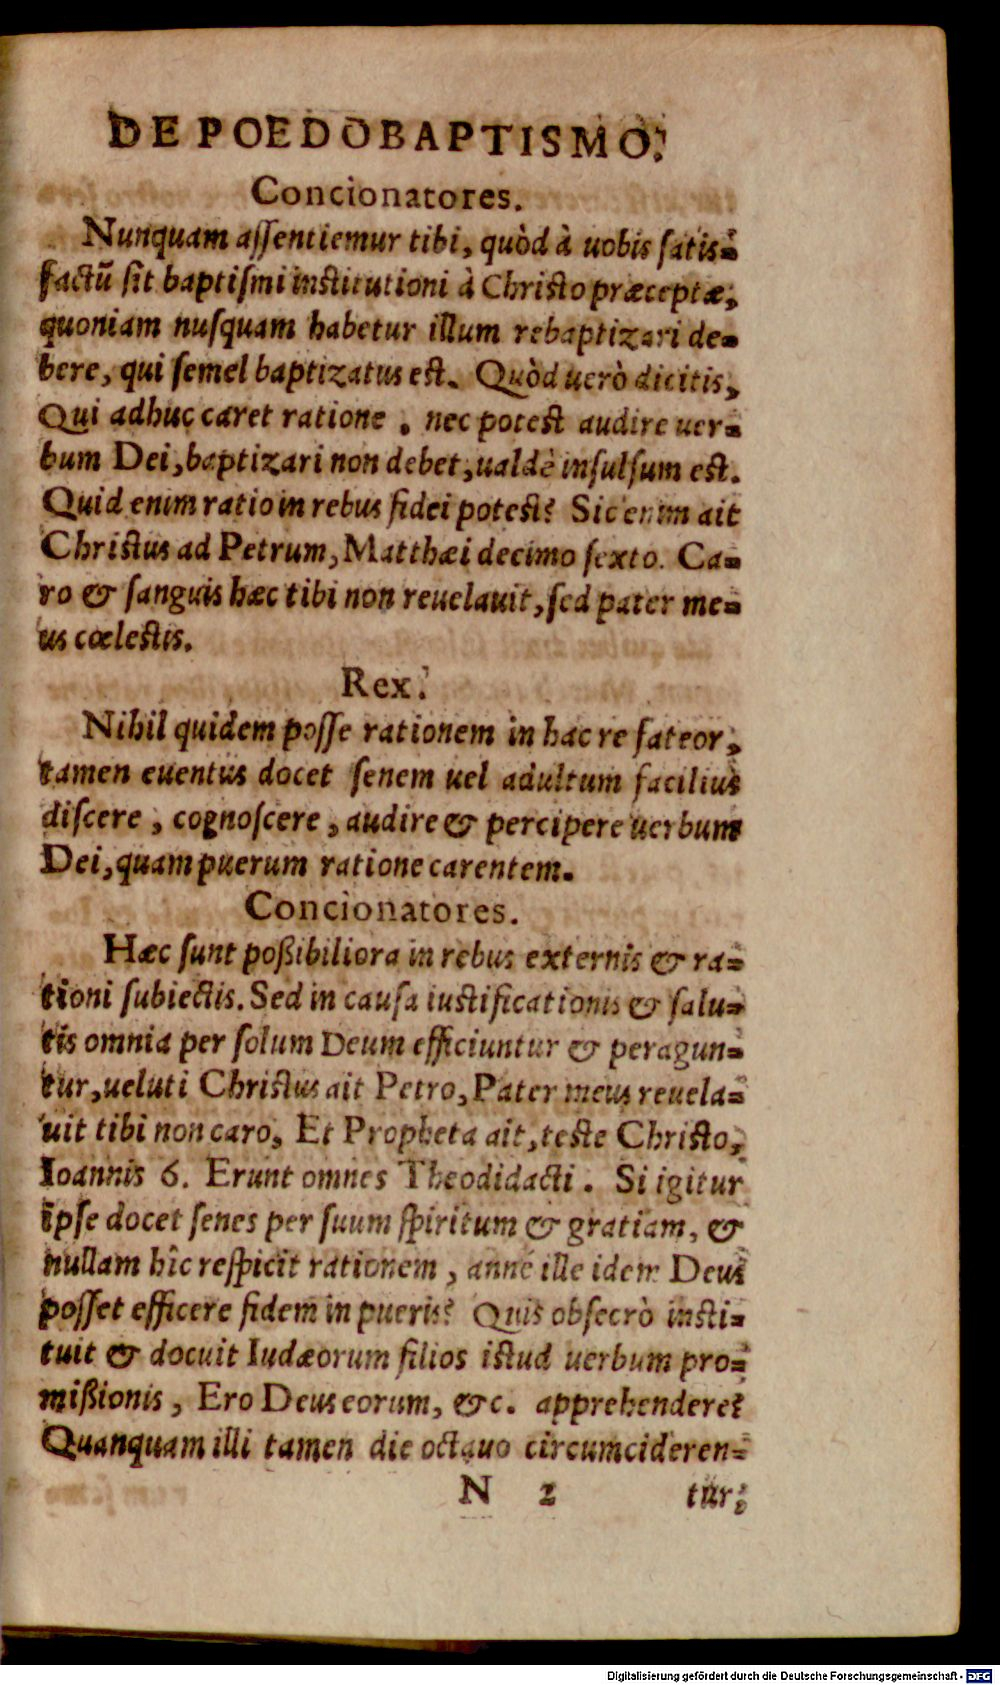 DE POEDOBAPTISMO.
Concionatores.
Nunquam aſſentiemur tibi, quòd à uobis ſatis-
factũ ſit baptiſmi inſtitutioni à Chriſto præceptæ,
quoniam nuſquam habetur illum rebaptizari de-
bere, qui ſemel baptizatus eſt. Quòd uerò dicitis,
Qui adhuc caret ratione , nec poteſt audire uer-
bum Dei, baptizari non debet, ualdè inſulſum eſt.
Quid enim ratio in rebus fidei poteſt? Sic enim ait
Chriſtus ad Petrum, Matthæi decimo ſexto. Ca-
ro & ſanguis hæc tibi non reuelauit, ſed pater me-
us cœleſtis.
Rex.
Nihil quidem poſſe rationem in hac re fateor,
tamen euentus docet ſenem uel adultum facilius
diſcere , cognoſcere , audire & percipere uerbum
Dei, quam puerum ratione carentem.
Concionatores.
Hæc ſunt poßibiliora in rebus externis & ra-
tioni ſubiectis. Sed in cauſa iuſtificationis & ſalu-
tis omnia per ſolum Deum efficiuntur & peragun-
tur, ueluti Chriſtus ait Petro, Pater meus reuela-
uit tibi non caro, Et Propheta ait, teſte Chriſto,
Ioannis 6. Erunt omnes Theodidacti . Si igitur
ipſe docet ſenes per ſuum ſpiritum & gratiam, &
nullam hîc reſpicit rationem , anne ille idem Deus
poſſet efficere fidem in pueris? Quis obſecrò inſti-
tuit & docuit Iudæorum filios iſtud uerbum pro-
mißionis , Ero Deus eorum, &c. apprehendere?
Quanquam illi tamen die octauo circumcideren-
N 2 tur,
Digitalisierung gefördert durch die Deutsche Forschungsgemeinschaft - DFG